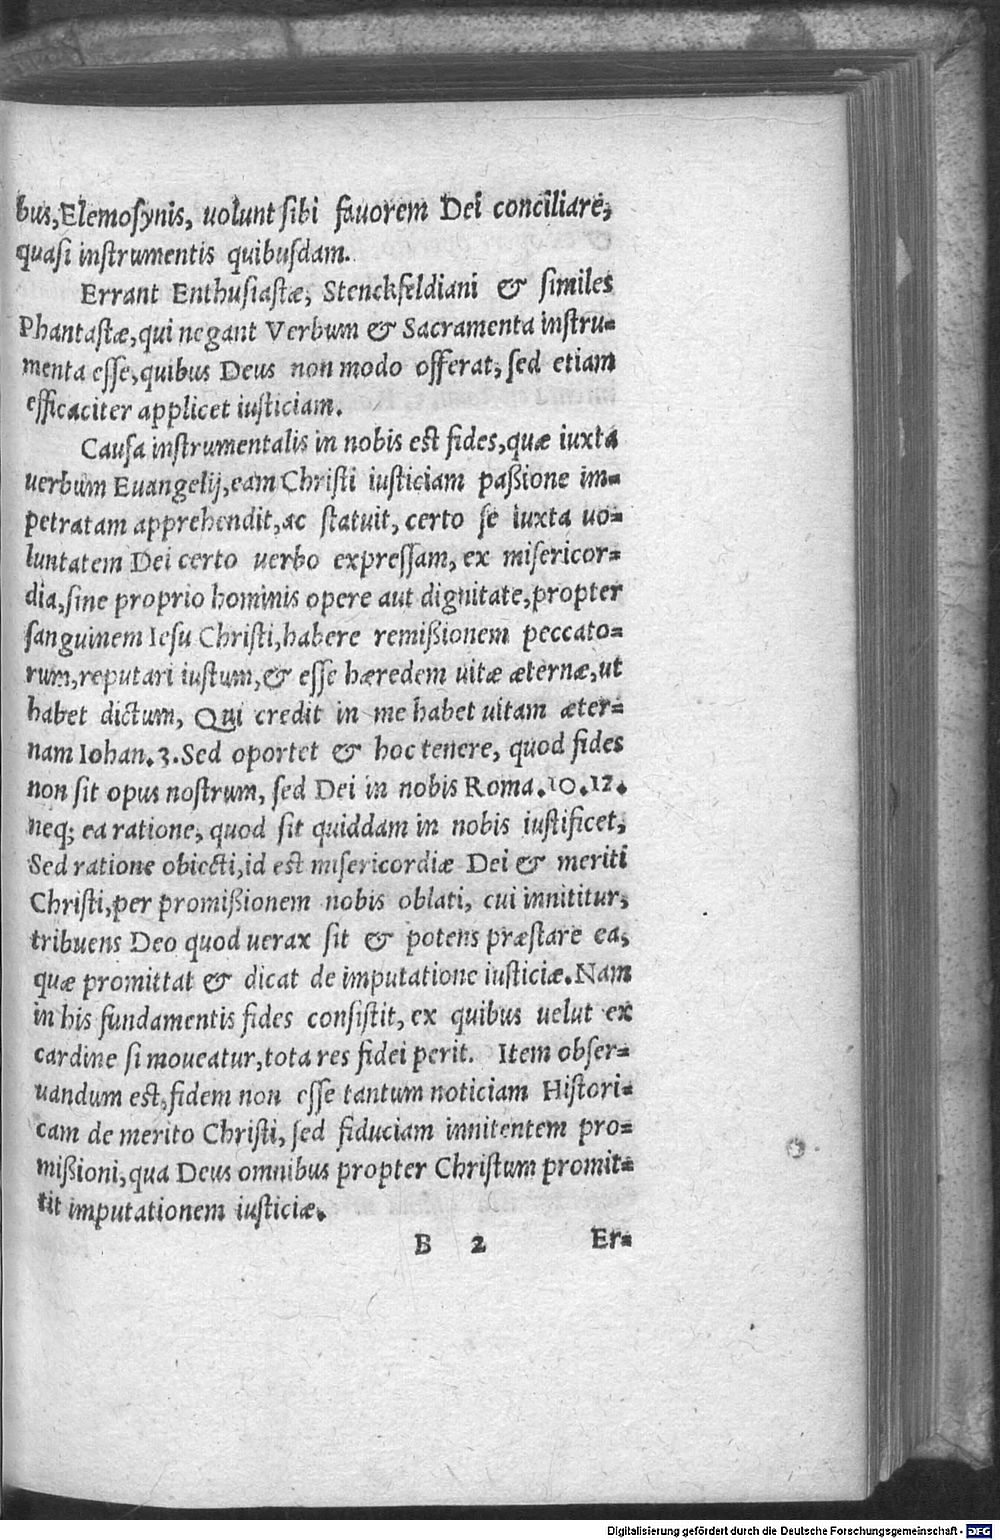 bus, Elemosynis, uolunt sibi fauorem Dei conciliare,
quasi instrumentis quibusdam.
Errant Enthusiastæ, Stenckfeldiani & similes
Phantastæ, qui negant Verbum & Sacramenta instru-
menta esse, quibus Deus non modo offerat, sed etiam
efficaciter applicet iusticiam.
Causa instrumentalis in nobis est fides, quæ iuxta
uerbum Euangelij, eam Christi iusticiam paßione im-
petratam apprehendit, ac statuit, certo se iuxta uo-
luntatem Dei certo uerbo expressam, ex misericor-
dia, sine proprio hominis opere aut dignitate, propter
sanguinem Iesu Christi, habere remißionem peccato-
rum, reputari iustum, & esse hæredem uitæ æternæ, ut
habet dictum, Qui credit in me habet uitam æter-
nam Iohan. 3. Sed oportet & hoc tenere, quod fides
non sit opus nostrum, sed Dei in nobis Roma. 10. 12.
neq; ea ratione, quod sit quiddam in nobis iustificet,
Sed ratione obiecti, id est misericordiæ Dei & meriti
Christi, per promißionem nobis oblati, cui innititur,
tribuens Deo quod uerax sit & potens præstare ea,
quæ promittat & dicat de imputatione iusticiæ. Nam
in his fundamentis fides consistit, ex quibus uelut ex
cardine si moueatur, tota res fidei perit. Item obser-
uandum est, fidem non esse tantum noticiam Histori-
cam de merito Christi, sed fiduciam innitentem pro-
mißioni, qua Deus omnibus propter Christum promit-
tit imputationem iusticiæ.
B 2 Er-
Digitalisierung gefördert durch die Deutsche Forschungsgemeinschaft - DFG